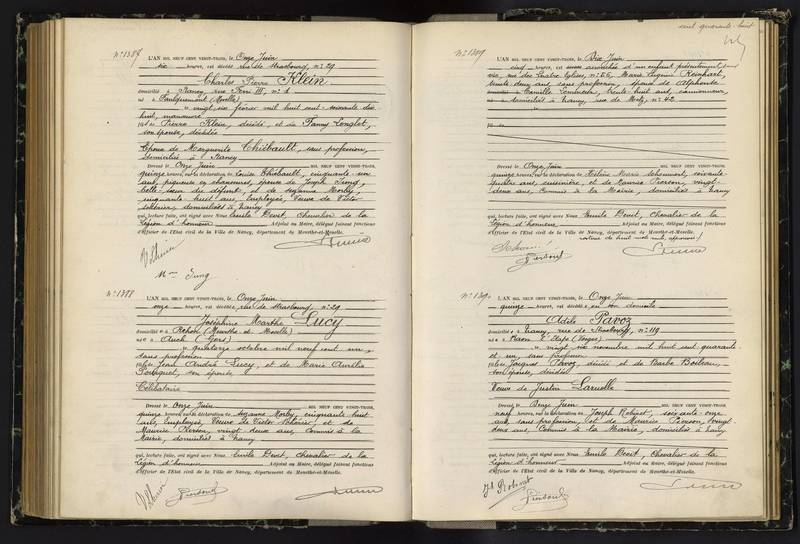 L'AN MIL NEUF CENT VINGT-TROIS, le Onze Juin
six heures, est décédé rue de Strasbourg, n° 29
Charles Pierre Klein
domicilié à Nancy, rue Ferri III, n° 1
né à
le vingt six février mil huit cent soixante dix
huit, manœuvre
fils de Pierre Klein, décédé, et de Fanny Longlet,
son épouse, décédée
Époux de Marguerite Thiébault, sans profession,
domiciliée à Nancy
Dressé le Onze Juin MIL NEUF CENT VINGT-TROIS,
quinze heures, sur la déclaration de Louise Thiébault, cinquante-un
ans, piqueuse en chaussures, épouse de Joseph Jung,
belle-sœur du défunt, et de Suzanne Morley,
cinquante huit ans, employée, Veuve de Victor
domiciliées à Nancy
qui, lecture faite, ont signé avec Nous Emile Devit, Chevalier de la
Légion d'honneur Adjoint au Maire, délégué faisant fonctions
d'Officier de l'Etat civil de la Ville de Nancy, département de Meurthe-et-Moselle.
Mme Jung
N° 1388
L'AN MIL NEUF CENT VINGT-TROIS, le Onze Juin
onze heures, est décédée rue de Strasbourg, n° 29
Joséphine Marthe Lucy
domiciliée à Rehon (Meurthe et Moselle)
née à Auch (Gers)
le quatorze octobre mil neuf cent un,
sans profession
fille de Jean André Lucy, et de Marie Aurélie
son épouse
Célibataire
Dressé le Onze Juin MIL NEUF CENT VINGT-TROIS,
quinze heures, sur la déclaration de Suzanne Morley, cinquante huit
ans, employée, Veuve de Victor et de
Maurice Pierson, vingt-deux ans, Commis à la
Mairie, domiciliés à Nancy
qui, lecture faite, ont signé avec Nous Emile Devit, Chevalier de la
Légion d'honneur Adjoint au Maire, délégué faisant fonctions
d'Officier de l'Etat civil de la Ville de Nancy, département de Meurthe-et-Moselle.
Pierson
cent quarante-huit
N° 1389
L'AN MIL NEUF CENT VINGT-TROIS, le Dix Juin
cinq heures, est accouchée d'un enfant présentement sans
vie, rue des Quatre Eglises, n° 56, Marie Eugénie Reinhart,
trente deux ans, sans profession, épouse de Alphonse
Camille trente huit ans, camionneur,
domiciliés à Nancy, rue de Metz, n° 42
Dressé le Onze Juin MIL NEUF CENT VINGT-TROIS,
quinze heures, sur la déclaration de Marie soixante
quatre ans, cuisinière, et de Maurice Pierson, vingt-
deux ans, Commis à la Mairie, domiciliés à Nancy
qui, lecture faite, ont signé avec Nous Emile Devit, Chevalier de la
Légion d'honneur Adjoint au Maire, délégué faisant fonctions
d'Officier de l'Etat civil de la Ville de Nancy, département de Meurthe-et-Moselle.
Pierson
N° 1390
L'AN MIL NEUF CENT VINGT-TROIS, le Onze Juin
quinze heures, est décédée en son domicile
Adèle Pavoz
domiciliée à Nancy, rue de Strasbourg, n° 119
née à Raon l'Etape (Vosges)
le vingt six novembre mil huit cent quarante
et un, sans profession
fille de Pavoz, décédé et de Barbe Boileau,
son épouse, décédée
Veuve de Justin Laruelle
Dressé le Douze Juin MIL NEUF CENT VINGT-TROIS,
neuf heures, sur la déclaration de Joseph Robinot, soixante onze
ans, sans profession, et de Maurice Pierson, vingt-
deux ans, Commis à la Mairie, domiciliés à Nancy
qui, lecture faite, ont signé avec Nous Emile Devit, Chevalier de la
Légion d'honneur Adjoint au Maire, délégué faisant fonctions
d'Officier de l'Etat civil de la Ville de Nancy, département de Meurthe-et-Moselle.
Jh Robinot
Pierson